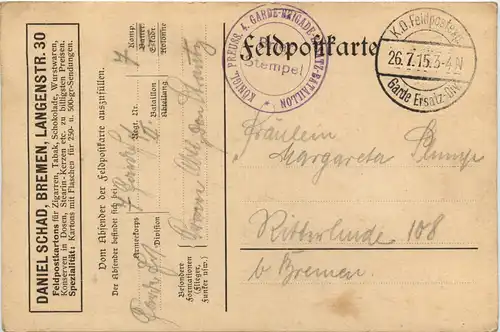 DANIEL SCHAD, BREMEN, LANGENSTR. 30
Feldpostkartons für Zigarren, Tabak, Schokolade, Wurstwaren,
Konserven in Dosen, Stearin-Kerzen etc. zu billigsten Preisen.
Spezialität: Kartons mit Flaschen für 250- u. 500-gr-Sendungen.
Vom Absender der Feldpostkarte auszufüllen.
Der Absender befindet sich bei:
Armeekorps
Division
Regt. Nr.
Bataillon
Abteilung
7
Komp.
Batter.
Kolonne
Besondere
Formationen
(Flieger,
Funker usw.)
Feldpostkarte
KÖNIGL. PREUSS. 4. GARDE-BRIGADE-ERSATZ-BATAILLON
Stempel
K.D. Feldpostexp.
26.7.15. 3-4 N
Garde Ersatz-Div.
Fräulein
Margareta
Ritterhude 108
b Bremen.